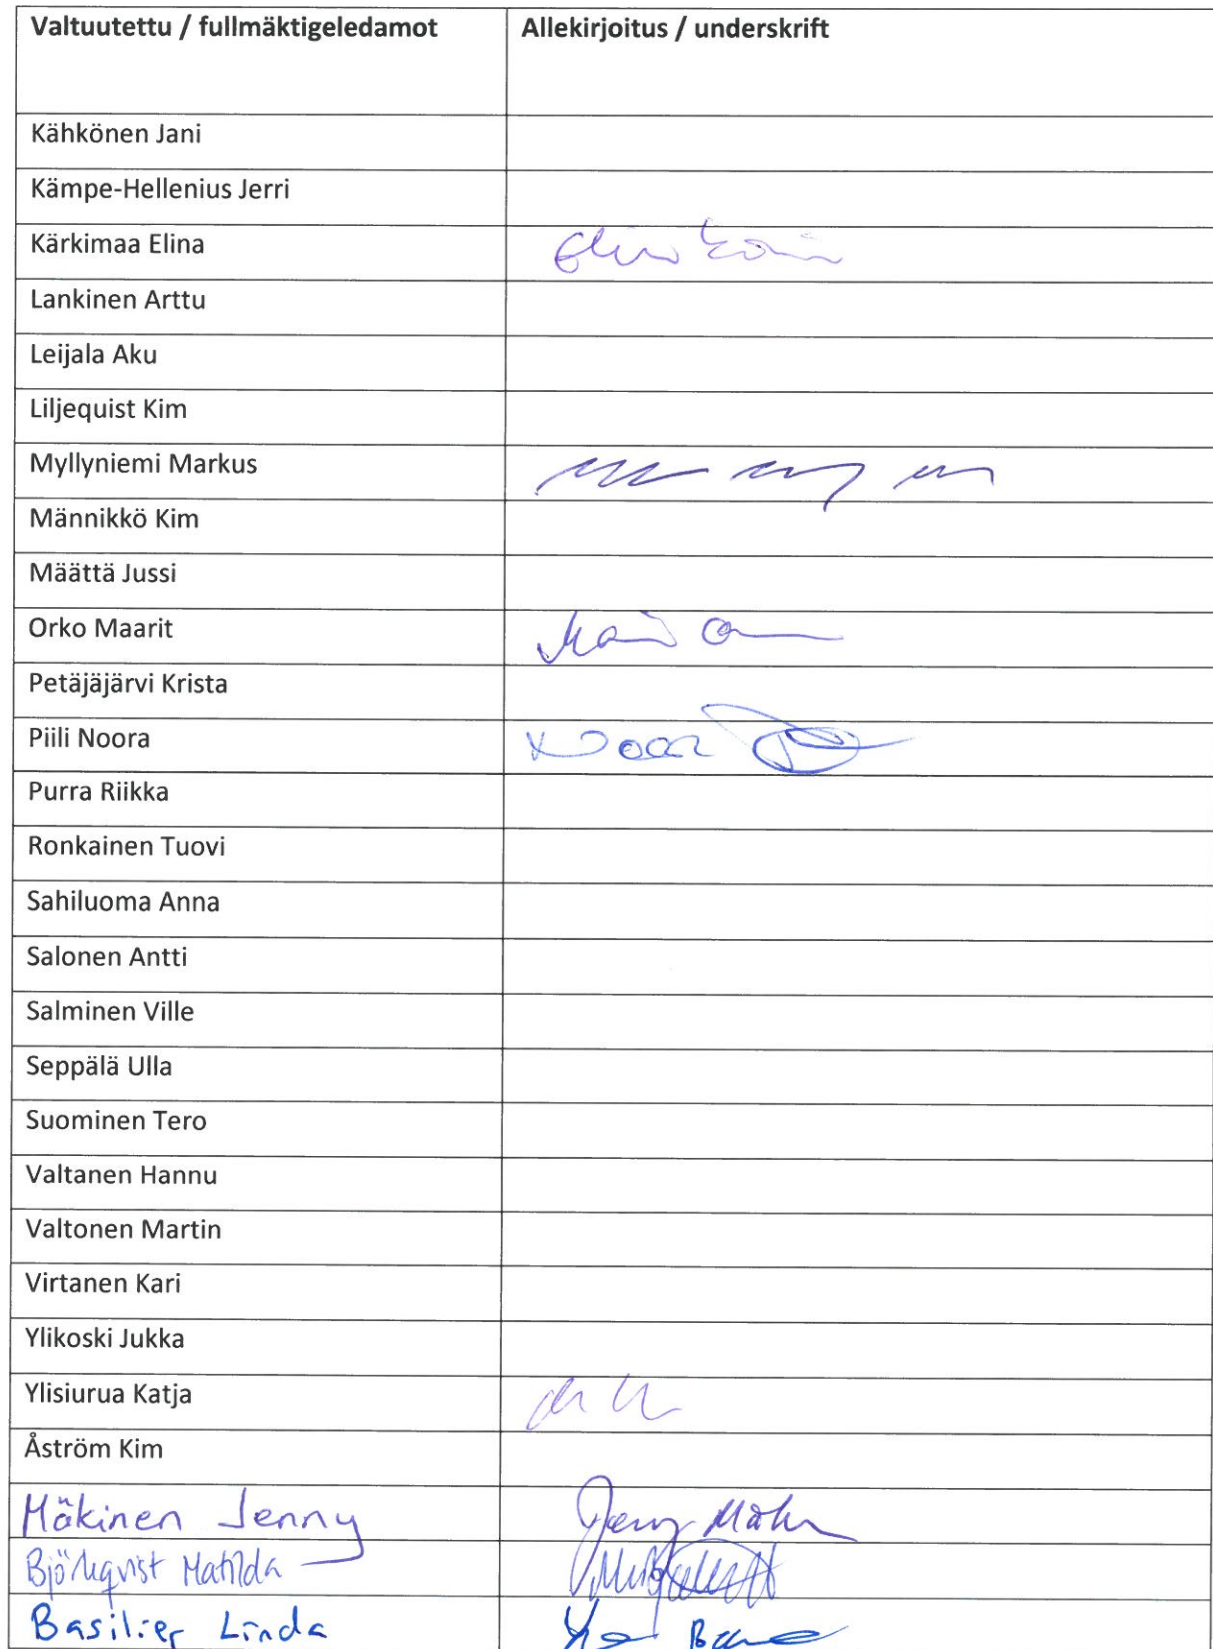 Valtuutettu / fullmäktigeledamot Allekirjoitus / underskrift
Kähkönen Jani
Kämpe-Hellenius Jerri
Kärkimaa Elina
Lankinen Arttu
Leijala Aku
Liljequist Kim
Myllyniemi Markus
Männikkö Kim
Määttä Jussi
Orko Maarit
Petäjäjärvi Krista
Piili Noora Noora
Purra Riikka
Ronkainen Tuovi
Sahiluoma Anna
Salonen Antti
Salminen Ville
Seppälä Ulla
Suominen Tero
Valtanen Hannu
Valtonen Martin
Virtanen Kari
Ylikoski Jukka
Ylisiurua Katja
Åström Kim
Mäkinen Jenny Jenny
Björkqvist Matilda
Basilier Linda